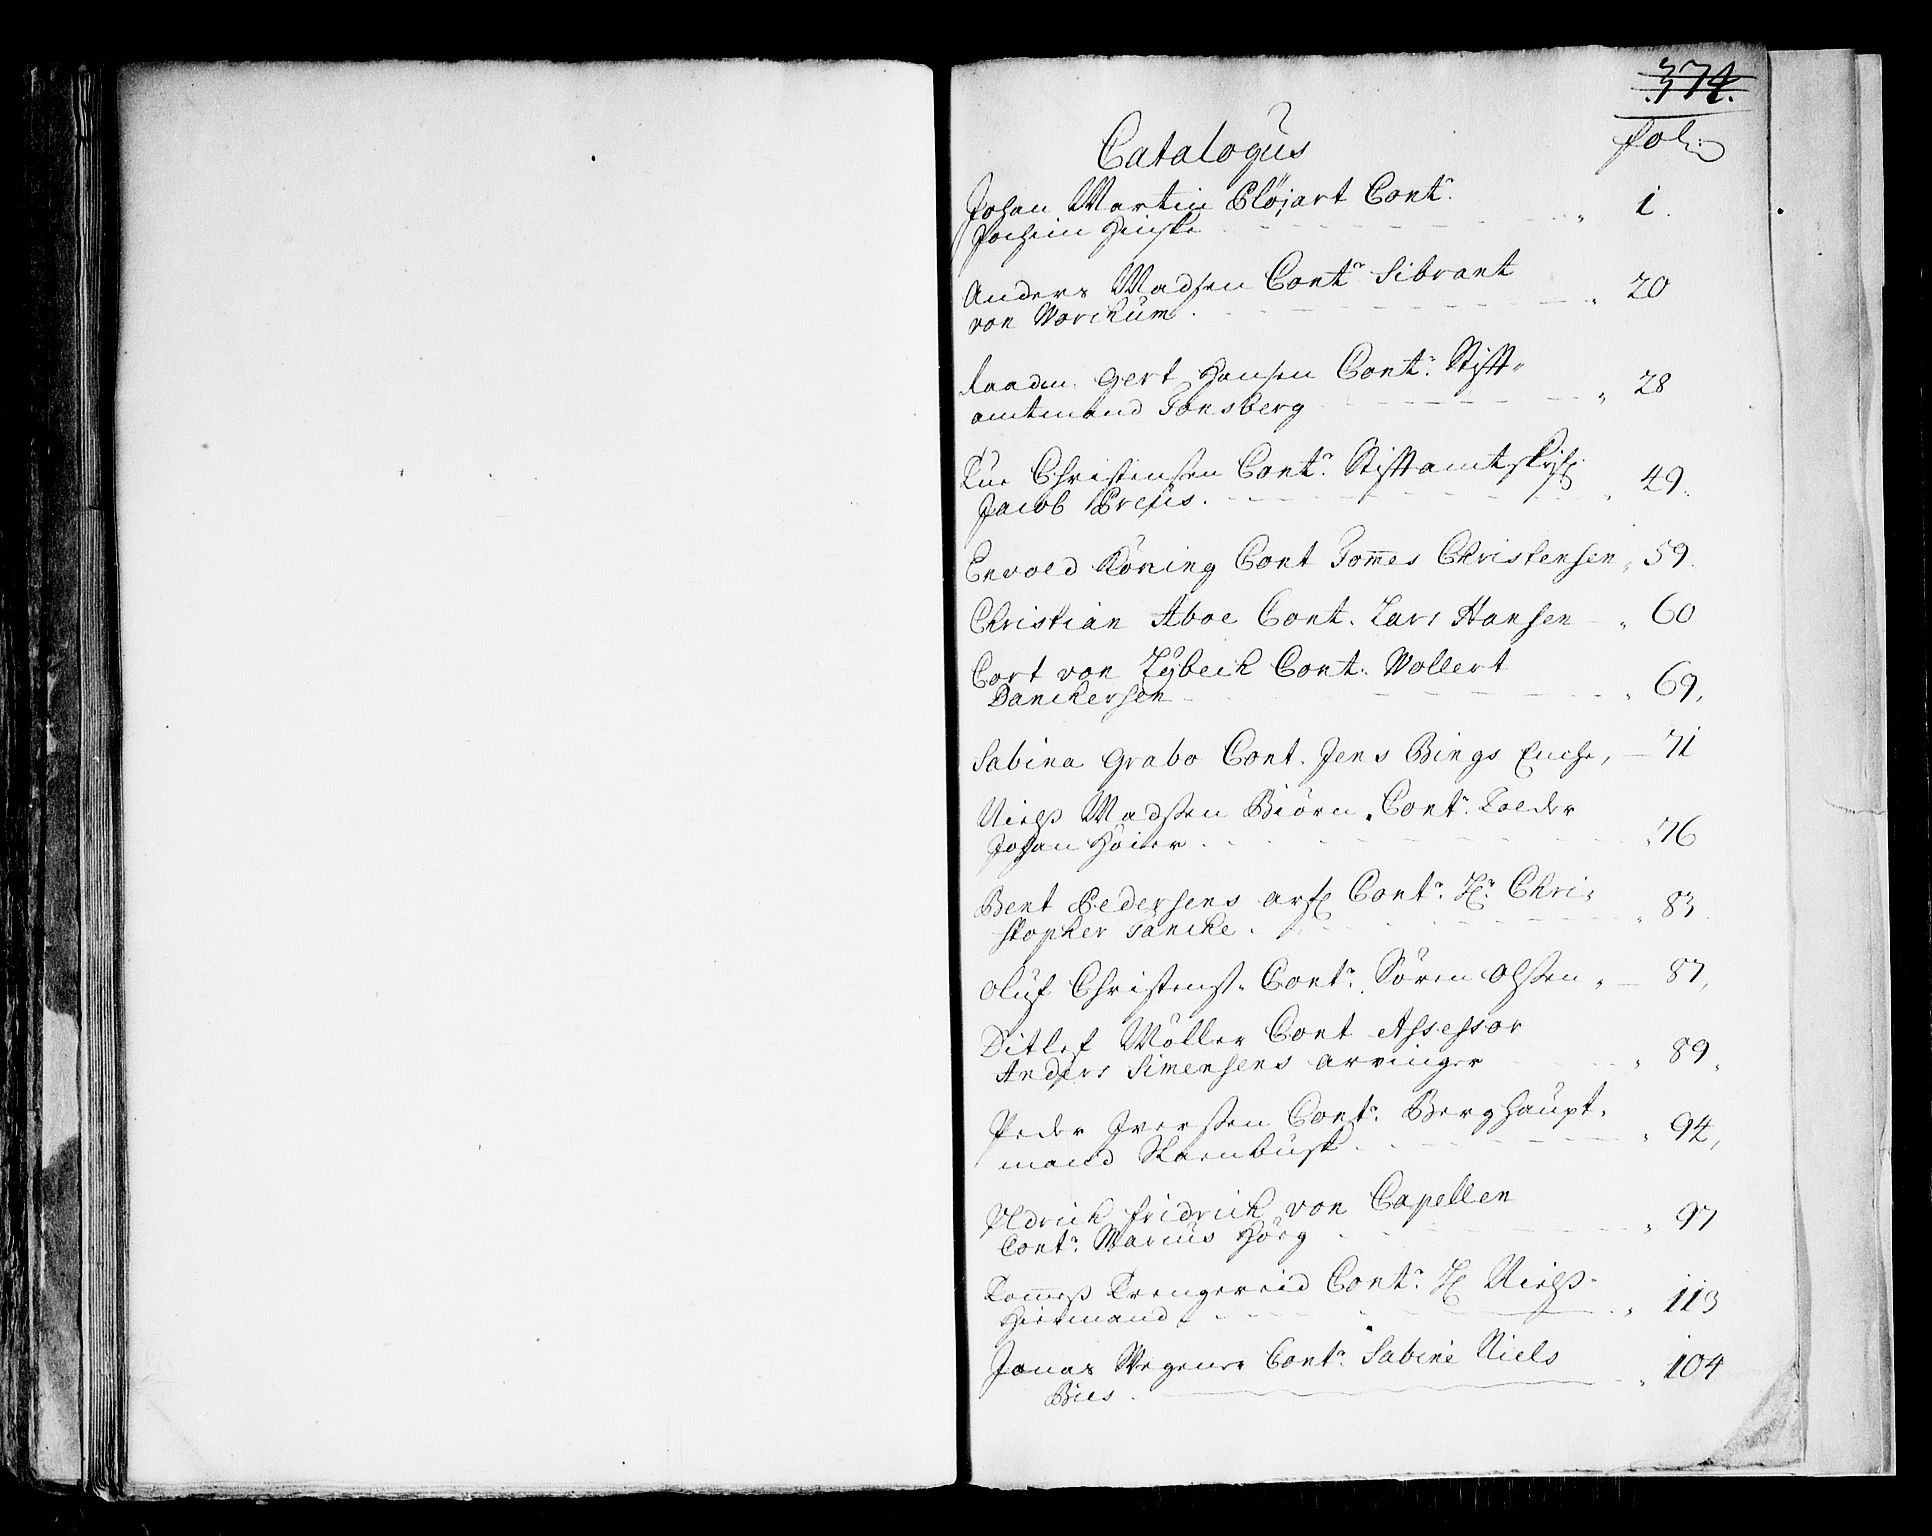 374.
Catalogus
fol:
Johan Martin Cløjart Contr. 1.
Jochim
Anders Madsen Contr Sibrant 20
von Worckum
Raadm. Gert Hansen Contr. Stifft-
amtmand Tonsberg 28
Christensen Contr. Stifftamtskrifr. 49.
Jacob Preūs
Envold Köning Cont Tom̄es Christensen 59.
Christian Aboe Cont. Lars Hansen 60
Cort von Lÿbeck Cont. Wollert
Danckersen 69.
Sabina Grabo Cont. Jens Bings Enche, 71
Niels Madsen Biörn. Contr. Tolder
Johan Höier 76
Bent Pedersens arf. Contr. Hr. Chri-
stopher Tancke 83
Oluf Christens. Contr. Sören Olsen 87,
Ditlef Möller Cont Assessor
Anders Simensens arvinger 89
Peder Iversen Contr. Berghaupt-
mand 94,
Uldrich fridrich von Capellen 97
Contr. Marcus Höeg
Contr. Hr Niels
Hiermand 113
Jonas Contr. Sabine Niels 104
Bies